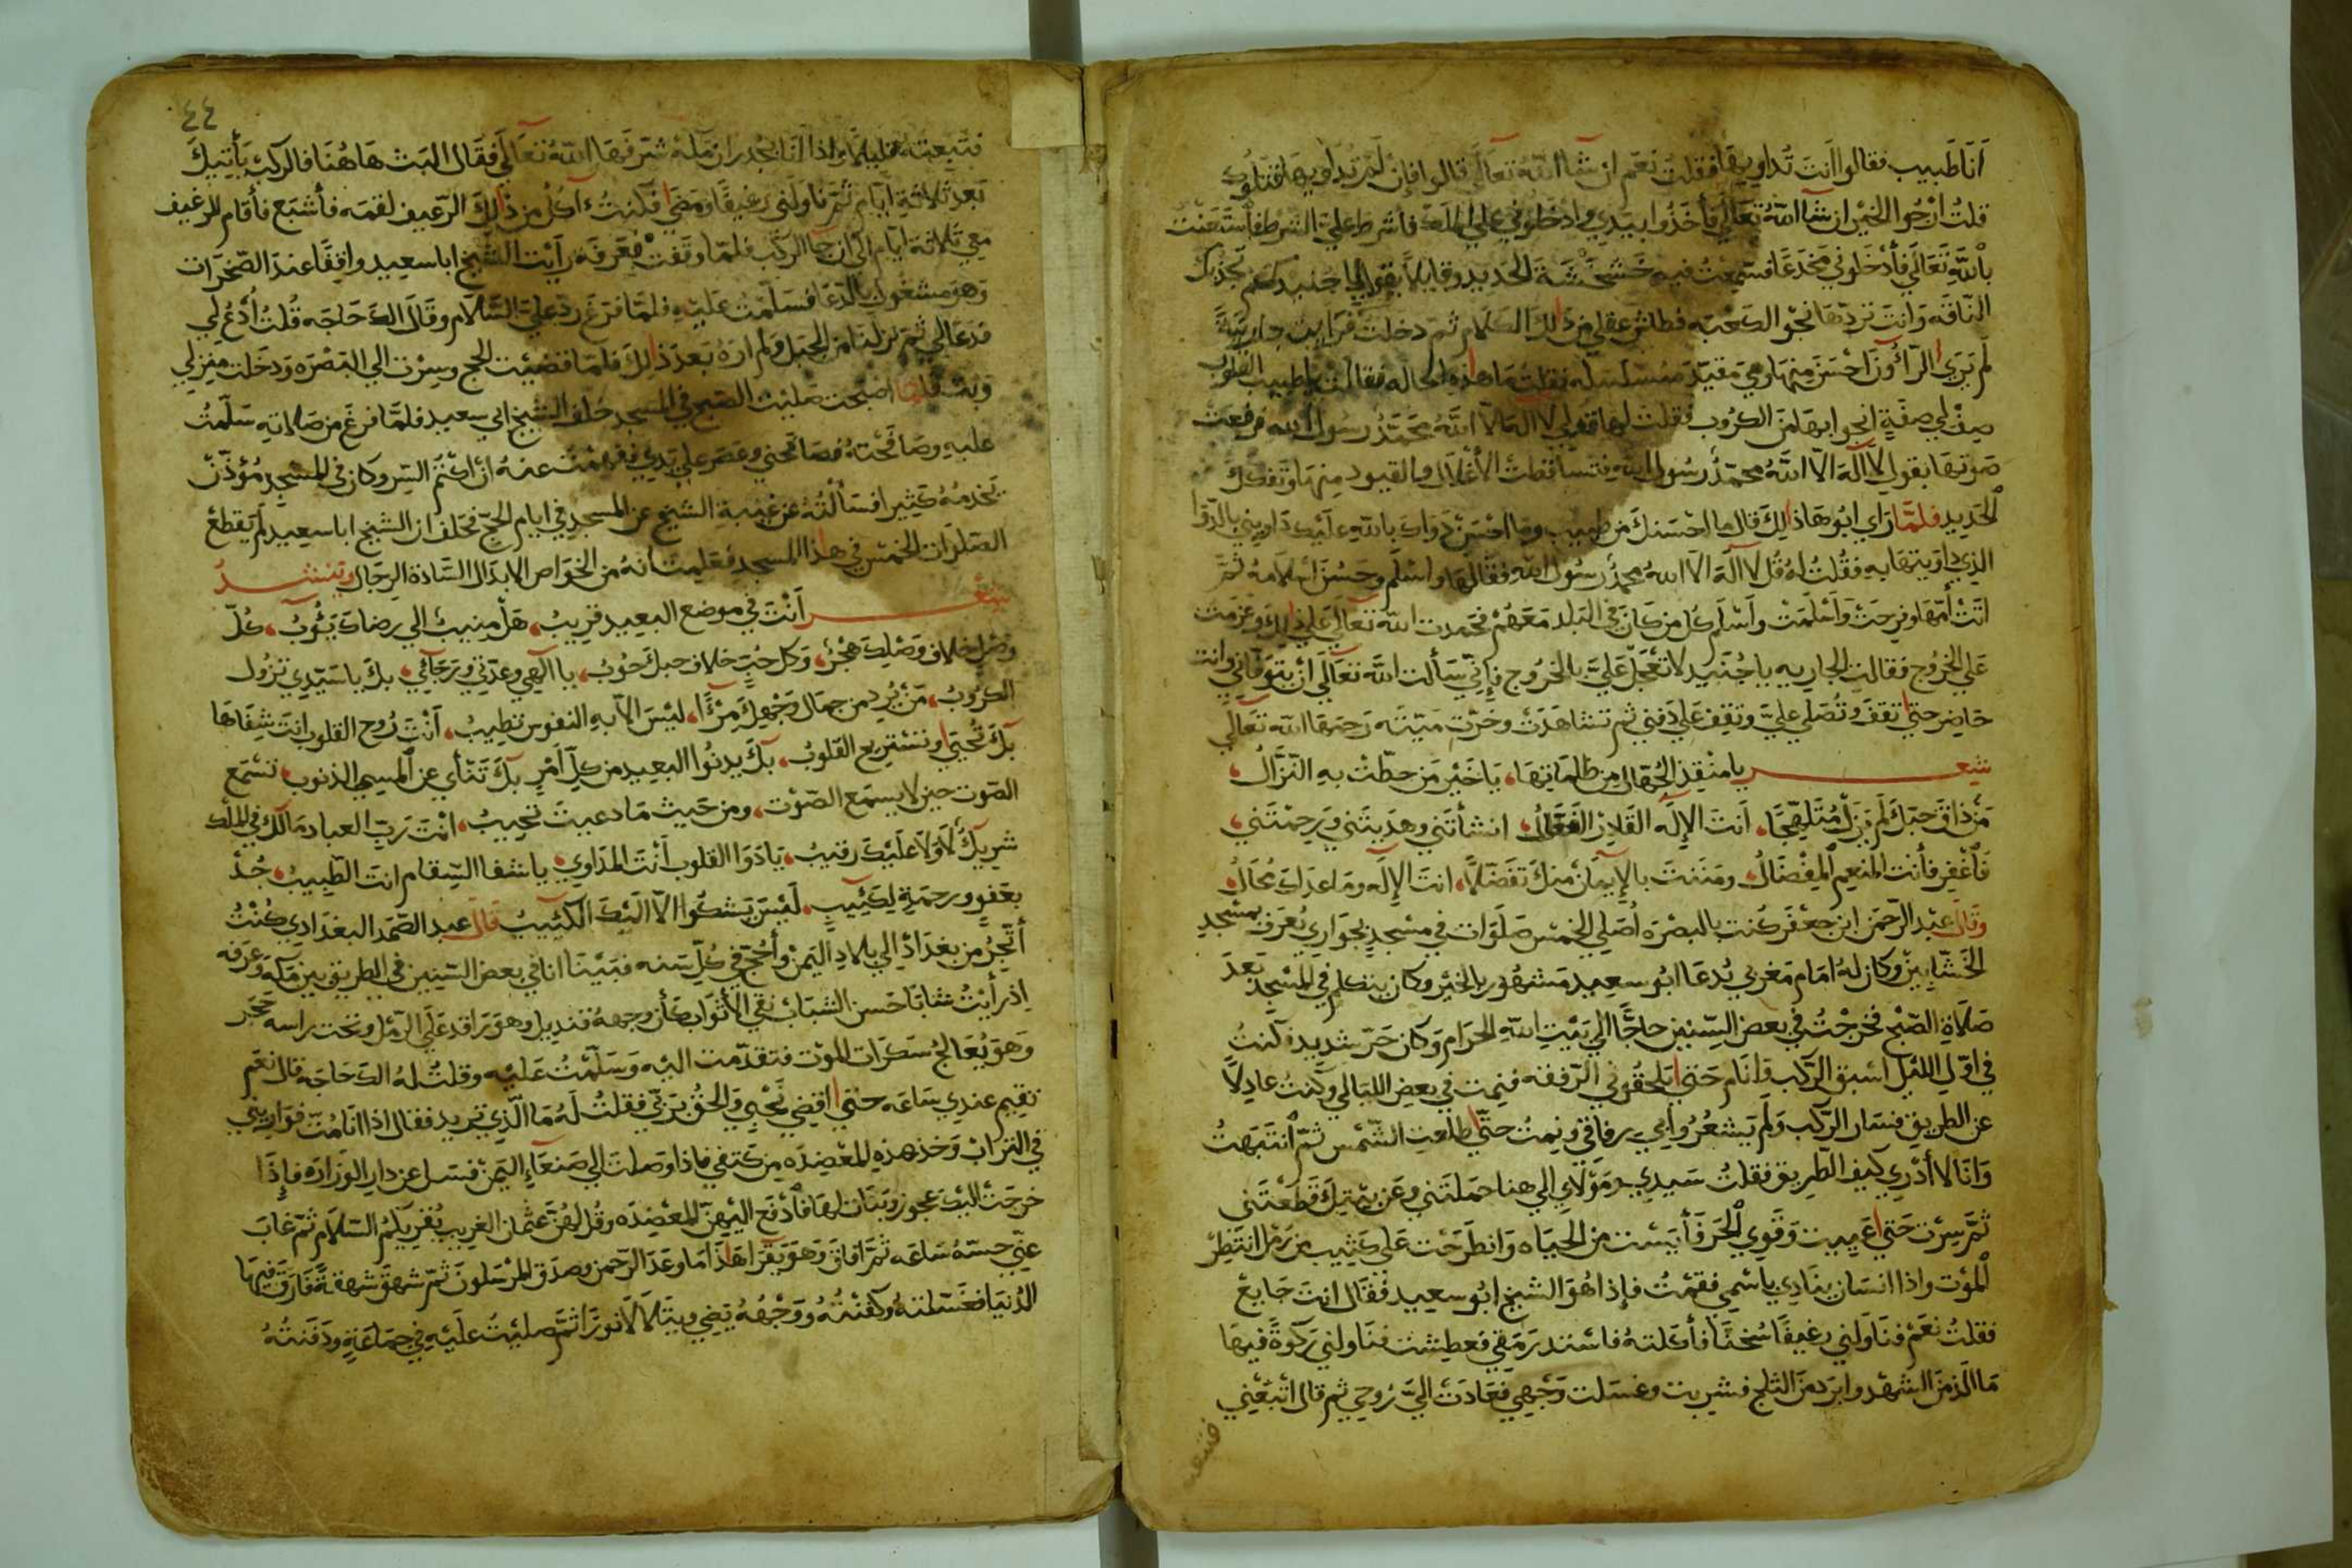 أنا طبيب فقالوا أنت تداويها فقلت نعم ان شاا الله تعالى قالوا فإن لم تداويها قتلوك
قلت ارجوا الخير ان شاا الله تعالى فأخذوا بيدي وادخلوني على الملك فأشرط علي الشرط فاستعنت
بالله تعالى فأدخلوني مخدعا فسمعت فيه خشخشة الحديد وقايلا يقول يا جنيد كم تجذبك
الناقة وانت تردها نحو الكعبه فطاش عقلي من ذلك الكلام ثم دخلت فرايت جارية
لم يرى الراؤن احسن منها وهي مقيدة مسلسله فقلت ما هذه الحاله فقالت يا طبيب القلوب
صف لي صفة انجوا بها من الكروب فقلت لها قولي لا اله الا الله محمد رسول الله فرفعت
صوتها بقول لا اله الا الله محمد رسول الله فتساقطت الأغلال والقيود منها وتفكك
الحديد فلما راي ابوها ذلك قال ما احسنك من طبيب وما احسن دواك بالله عليك داويني بالدوا
الذي داويتها به فقلت له قل لا اله الا الله محمد رسول الله فقالها واسلم وحسن اسلامه ثم
اتت أمها وفرحت وأسلمت وأسلم كل من كان في البلد معهم فحمدت الله تعالى على ذلك وعزمت
على الخروج فقالت الجاريه يا جنيد لا تعجل علي بالخروج فإني سألت الله تعالى أن يتوفاني وانت
حاضر حتى تقف وتصلي علي وتقف على دفني ثم تشاهدت وخرت ميتة رحمها الله تعالى
شعر يا منقذ الجهال من ظلماتها، يا خير من حطت به النزال،
من ذاق حبك لم يزل متلهجا، أنت الإله القادر الفعال، انشأتني وهديتني ورحمتني،
فاغفر فأنت المنعم المفضال، ومننت بالإيمان منك تفضلا، انت الإله وما عداك محال،
وقال عبد الرحمن ابن جعفر كنت بالبصرة أصلي الخمس صلوات في مسجد بجواري يعرف بمسجد
الخشابين وكان له امام مغربي يدعا ابو سعيد مشهور بالخير وكان يتكلم في المسجد بعد
صلاة الصبح فخرجت في بعض السنين حاجا الي بيت الله الحرام وكان حر شديد فكنت
في اول الليل اسبق الركب فانام حتى يلحقوني الرفقه فنمت في بعض الليالي وكنت عادلا
عن الطريق فسار الركب ولم يشعروا بي رفاقي ونمت حتى طلعت الشمس ثم انتبهت
وانا لا أدري كيف الطريق فقلت سيدي ومولاي الي هنا حملتني وعن بيتك قطعتني
ثم سرت حتى اعييت وقوي الحر فأيست من الحياه وانطرحت على كثيب من رمل انتظر
الموت واذا انسان ينادي باسمي فقمت فإذا هو الشيخ ابو سعيد فقال انت جايع
فقلت نعم فناولني رغيفا سخنا فأكلته فاشتد رمقي فعطشت فناولني ركوة فيها
ما الذ من الشهد وابرد من الثلج فشربت وغسلت وجهي فعادت الي روحي ثم قال اتبعني
فتبعته
٤٤
فتبعته قليلا واذا انا بجدران مكة شرفها الله تعالى فقال البث هاهنا فالركب يأتيك
بعد ثلاثة ايام ثم ناولني رغيفا ومضى فكنت آكل من ذلك الرغيف لقمه فأشبع فأقام الرغيف
معي ثلاثة ايام الى ان جا الركب فلما وقفت بعرفه رأيت الشيخ ابا سعيد واقفا عند الصخرات
وهو مشغول بالدعا فسلمت عليه فلما فرغ رد علي السلام وقال الك حاجه قلت أدع لي
فدعا لي ثم نزلنا من الجبل ولم اره بعد ذلك فلما قضيت الحج وسرت الي البصره ودخلت منزلي
وبت فلما اصبحت صليت الصبح في المسجد خلف الشيخ ابي سعيد فلما فرغ من صلاته سلمت
عليه وصافحته فصافحني وعصر على يدي ففهمت عنه ان اكتم السر وكان في المسجد مؤذن
يخدمه كثير افسألته عن غيبة الشيخ عن المسجد في ايام الحج فحلف ان الشيخ ابا سعيد لم يقطع
الصلوات الخمس في هذا المسجد فعلمت انه من الخواص الابدال السادة الرجال وينشد
شعر أنت في موضع البعيد قريب، هل منيب الي رضاك يؤوب، كل
وصل خلاف وصلك هجر، وكل حب خلاف حبك حوب، يا الهي وعدتي ورجائي، بك يا سيدي تزول
الكروب، من يرد من جمال وجهك مرءا، ليس الا به النفوس تطيب، أنت روح القلوب انت شفاها
بك تحيى وتستريح القلوب، بك يدنوا البعيد من كل أمر بك تنأي عن المسي الذنوب، تسمع
الصوت حين لا يسمع الصوت، ومن حيث ما دعيت تجيب، انت رب العباد مالك في الملك
شريك، لا ولا عليك رقيب، يا دوا القلوب أنت المداوي، يا شفا السقام انت الطبيب، جد
بعفو ورحمة لكئيب، ليس يشكوا الا اليك الكئيب قال عبد الصمد البغدادي كنت
أتجر من بغداذ الي بلاد اليمن وأحج في كل سنه فبينا انا في بعض السنين في الطريق بين مكه وعرفه
اذ رأيت شابا حسن الشباب نقي الأثواب كأن وجهه قنديل وهو راقد على الرمل وتحت راسه حجر
وهو يعالج سكرات الموت فتقدمت اليه وسلمت عليه وقلت له الك حاجه قال نعم
تقيم عندي ساعه حتى اقضي نحبي والحق بربي فقلت له ما الذي تريد فقال اذا انا مت فواريني
في التراب وخذ هذه المعضده من كتفي فاذا وصلت الي صنعاء اليمن فسل عن دار الوزاره فإذا
خرجت اليك عجوز وبنات لها فادفع اليهن المعضده وقل لهن عثمان الغريب يقريكم السلام ثم غاب
عني حسه ساعه ثم افاق وهو يقرا هذا ما وعد الرحمن وصدق المرسلون ثم شهق شهقة فارق فيها
الدنيا فغسلته وكفنته ووجهه يضي ويتلالا نورا ثم صليت عليه في جماعة ودفنته